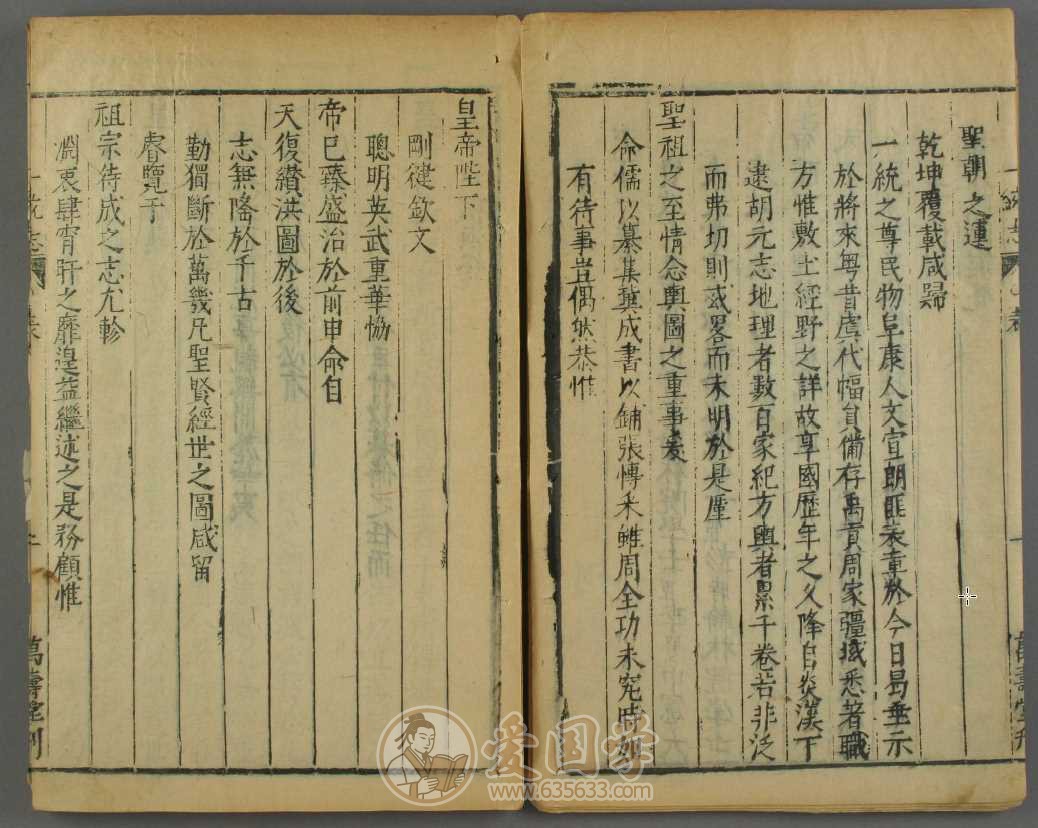 聖朝之運
乾坤覆載咸歸
一統之尊民物阜康人文宣朗匪表章於今日曷垂示
於將來粵昔虞代幅員備存禹貢周家疆域悉著職
方惟敷土經野之詳故享國歷年之久降自炎漢下
逮胡元志地理者數百家紀方輿者累千卷若非泛
而弗切則或畧而未明於是厪
聖祖之至情念輿圖之重事爰
命儒以纂集冀成書以鋪張博采雖周全功未究時如
有待事豈偶然恭惟
皇帝陛下
剛健欽文
聰明英武重華協
帝已臻盛治於前申命自
天復纘洪圖於後
志無隆於千古
勤獨斷於萬幾凡聖賢經世之圖咸留
睿覽于
祖宗待成之志尤軫
淵衷肆宵旰之靡遑益繼述之是務顧惟
一統志 表
萬壽堂刊
爱国学
www.635633.com